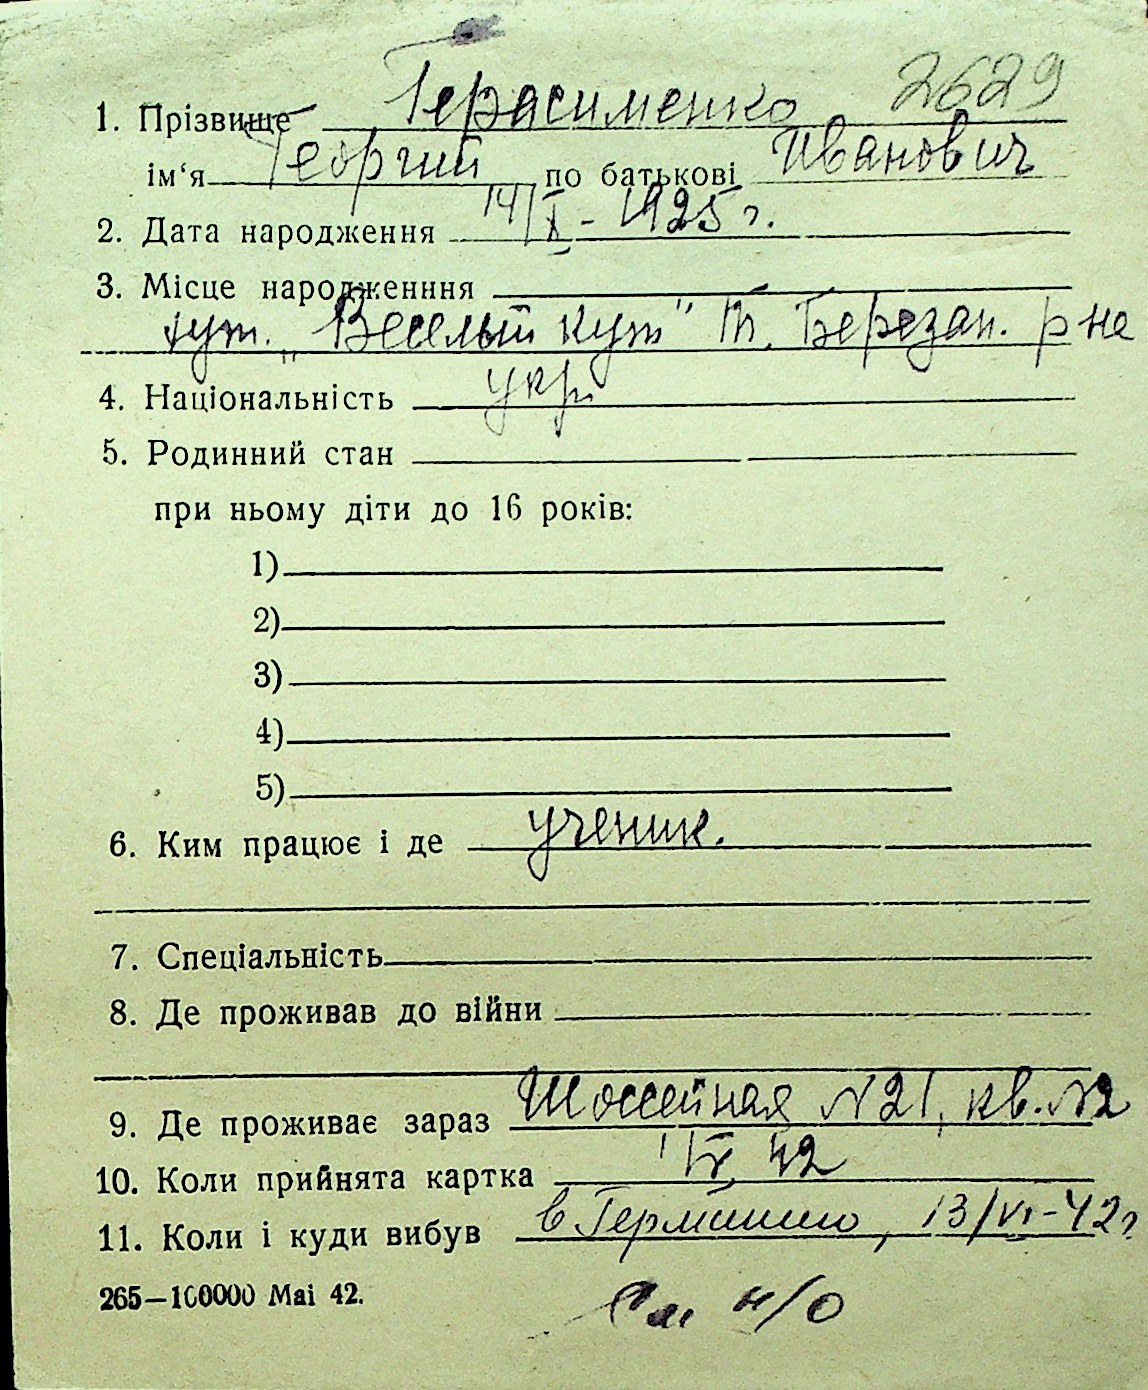 2629
1. Прізвище Герасименко
ім‘я Георгий по батькові Иванович
2. Дата народження 14/X - 1925 г.
3. Місце народженння
хут. „Веселый кут" Березан. р-не
4. Національність укр.
5. Родинний стан
при ньому діти до 16 років:
1)
2)
3)
4)
5)
6. Ким працює і де ученик.
7. Спеціальність
8. Де проживав до війни
9. Де проживає зараз Шоссейная №21, кв. №2
10. Коли прийнята картка 42
11. Коли і куди вибув в Германию, 13/VI-42г
265—100000 Mai 42.
См н/о